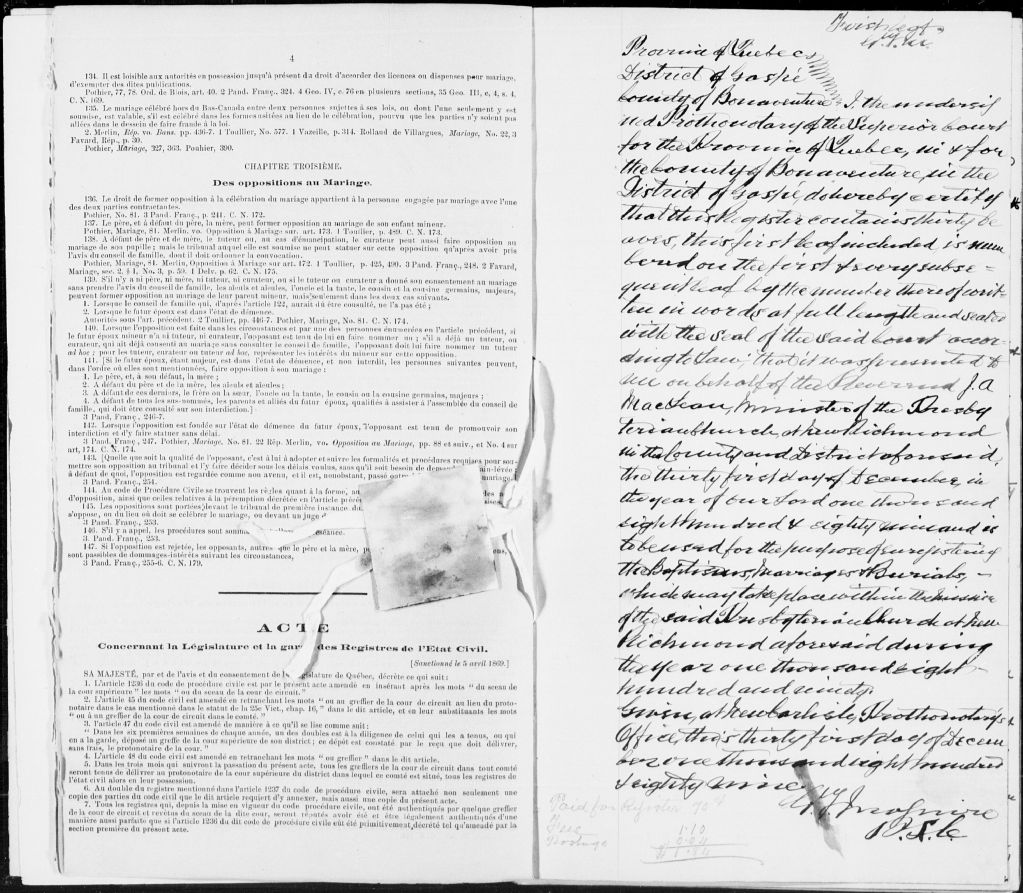 4
134. Il est loisible aux autorités en possession jusqu'à présent du droit d'accorder des licences ou dispenses pour mariage,
d'exempter des dites publications.
Pothier, 77, 78. Ord. de Blois, art. 40. 2 Pand. Franç., 324. 4 Geo. IV, c. 76 en plusieurs sections, 35 Geo. III, c, 4, s. 4.
C. N. 169.
135. Le mariage célébré hors du Bas-Canada entre deux personnes sujettes à ses lois, ou dont l'une seulement y est
soumise, est valable, s'il est célébré dans les formes usitées au lieu de la célébration, pourvu que les parties n'y soient pas
allées dans le dessein de faire fraude à la loi.
2. Merlin, Rép. vo. Bans. pp. 436-7. 1 Toullier, No. 577. 1 Vazeille, p. 314. Rolland de Villargues, Mariage, No. 22, 3
Favard, Rép., p. 39.
Pothier, Mariage, 327, 363. Pouhier, 390.
CHAPITRE TROISIÈME.
Des oppositions au Mariage.
136. Le droit de former opposition à la célébration du mariage appartient à la personne engagée par mariage avec l'une
des deux parties contractantes.
Pothier, No. 81. 3 Pand. Franç., p. 241. C. N. 172.
137. Le père, et à défaut du père, la mère, peut former opposition au mariage de son enfant mineur.
Pothier, Mariage, 81. Merlin, vo. Opposition à Mariage sur. art. 173. 1 Toullier, p. 489. C. N. 173.
138. A défaut de père et de mère, le tuteur ou, au cas d'émancipation, le curateur peut aussi faire opposition au
mariage de son pupille; mais le tribunal auquel elle est soumise ne peut statuer sur cette opposition qu'après avoir pris
l'avis du conseil de famille, dont il doit ordonner la convocation.
Pothier, Mariage, 81. Merlin, Opposition à Mariage sur art. 172. 1 Toullier, p. 425, 490. 3 Pand. Franç., 248. 2 Favard,
Mariage, sec. 2, § 1, No. 3, p. 59. 1 Delv. p. 62. C. N. 175.
139. S'il n'y a ni père, ni mère, ni tuteur, ni curateur, ou si le tuteur ou curateur a donné son consentement au mariage
sans prendre l'avis du conseil de famille, les aïeuls et aïeules, l'oncle et la tante, le cousin et la cousine germains, majeurs,
peuvent former opposition au mariage de leur parent mineur, mais seulement dans les deux cas suivants.
1. Lorsque le conseil de famille qui, d'après l'article 122, aurait dû être consulté, ne l'a pas été;
2. Lorsque le futur époux est dans l'état de démence.
Autorités sous l'art. précédent. 2 Toullier, pp. 446-7. Pothier, Mariage, No. 81. C. N. 174.
140. Lorsque l'opposition est faite dans les circonstances et par une des personnes énumérées en l'article précédent, si
le futur époux mineur n'a ni tuteur, ni curateur, l'opposant est tenu de lui en faire nommer un; s'il a déjà un tuteur, ou
curateur, qui ait déjà consenti au mariage sans consulter le conseil de famille, l'opposant doit lui faire nommer un tuteur
ad hoc; pour les tuteur, curateur ou tuteur ad hoc, représenter les intérêts du mineur sur cette opposition.
141. [Si le futur époux, étant majeur, est dans l'état de démence, et non interdit, les personnes suivantes peuvent,
dans l'ordre où elles sont mentionnées, faire opposition à son mariage:
1. Le père, et, à son défaut, la mère;
2. A défaut du père et de la mère, les aïeuls et aïeules;
3. A défaut de ces derniers, le frère ou la sœur, l'oncle ou la tante, le cousin ou la cousine germains, majeurs;
4. A défaut de tous les sus-nommés, les parents et alliés du futur époux, qualifiés à assister à l'assemblée du conseil de
famille, qui doit être consulté sur son interdiction.]
3 Pand. Franç., 246-7.
142. Lorsque l'opposition est fondée sur l'état de démence du futur époux, l'opposant est tenu de promouvoir son
interdiction et d'y faire statuer sans délai.
3 Pand. Franç., 247. Pothier, Mariage. No. 81. 22 Rép. Merlin, vo. Opposition au Mariage, pp. 88 et suiv., et No. 4 sur
art, 174. C. N. 174.
143. [Quelle que soit la qualité de l'opposant, c'est à lui à adopter et suivre les formalités et procédures requises pour sou-
mettre son opposition au tribunal et l'y faire décider sous les délais voulus, sans qu'il soit besoin de
à défaut de quoi, l'opposition est regardée comme non avenu, et il est, nonobstant, passé mariage
3 Pand. Franç., 254.
144. Au Code de Procédure Civile se trouvent les règles quant à la forme,
d'opposition, ainsi que celles relatives à la péremption décrétée en l'article
145. Les oppositions sont portées devant le tribunal de première instance du
s'oppose, ou du lieu où doit se célébrer le mariage, ou devant un juge
3 Pand. Franç., 253.
146. S'il y a appel, les procédures sont
3 Pand. Franç., 253.
147. Si l'opposition est rejetée, les opposants, autres que le père et la mère,
sont passibles de dommages-intérêts suivant les circonstances,
3 Pand. Franç., 255-6. C. N. 179.
ACTE
Concernant la Législature et la des Registres de l'Etat Civil.
[Sanctionné le 5 avril 1869.]
SA MAJESTÉ, par et de l'avis et du consentement de la gislature de Québec, décrète ce qui suit:
1. L'article 1236 du code de procédure civile est par le présent acte amendé en insérant après les mots " du sceau de
la cour supérieure " les mots " ou du sceau de la cour de circuit."
2. L'article 45 du code civil est amendé en retranchant les mots " ou au greffier de la cour de circuit au lieu du proto-
notaire dans le cas mentionné dans le statut de la 25e Vict., chap. 16, " dans le dit article, et en leur substituants les mots
" ou à un greffier de la cour de circuit dans le comté. "
3. l'article 47 du code civil est amendé de manière à ce qu'il se lise comme suit:
" Dans les six premières semaines de chaque année, un des doubles est à la diligence de celui qui les a tenus, ou qui
en a la garde, déposé au greffe de la cour supérieure de son district; ce dépôt est constaté par le reçu que doit délivrer,
sans frais, le protonotaire de la cour. "
4. L'article 48 du code civil est amendé en retranchant les mots " ou greffier " dans le dit article.
5. Dans les trois mois qui suivront la passation du présent acte, tous les greffiers de la cour de circuit dans tout comté
seront tenus de délivrer au protonotaire de la cour supérieure du district dans lequel ce comté est situé, tous les registres de
l'état civil alors en leur possession.
6. Au double du registre mentionné dans l'article 1237 du code de procédure civile, sera attaché non seulement une
copie des parties du code civil que le dit article requiert d'y annexer, mais aussi une copie du présent acte.
7. Tous les registres qui, depuis la mise en vigueur du code procédure civile, ont été authentiqués par quelque greffier
de la cour de circuit et revêtus du sceau de la dite cour, seront réputés avoir été et être légalement authentiqués d'une
manière aussi parfaite que si l'article 1236 du dit code de procédure civile eût été primitivement décrété tel qu'amendé par la
section première du présent acte.
Province of Quebec
District of Gaspé
County of Bonaventure I, the undersig
ned Prothonotary of the Superior Court
for the Province of Quebec, in & for
the County of Bonaventure, in the
District of Gaspé, do hereby certify
that this Register contains thirty le
aves, this first leaf included is num
bered on the first & every subse=
quent leaf by the number thereof writ=
ten in words at full length and sealed
with the seal of the said Court accor=
ding to Law; that it was presented to
me on behalf of the Reverend J. A
MacLean, Minister of the Presby
terian Church, at New Richmond
in the County and District aforesaid,
the thirty first day of December, in
the year of our Lord one thousand
eight hundred & eighty nine and is
to be used for the purpose of registering
the Baptisms, Marriages & Burials, -
which may take place within the mission
of the said Presbyterian Church at New
Richmond aforesaid during
the year one thousand eight -
hundred and ninety.
Given, at New Carlisle, Prothonotary's
Office, this thirty first day of Decem
ber one thousand eight hundred
& eighty nine
P. S. C.
Paid for Register 70
Postage
1.10